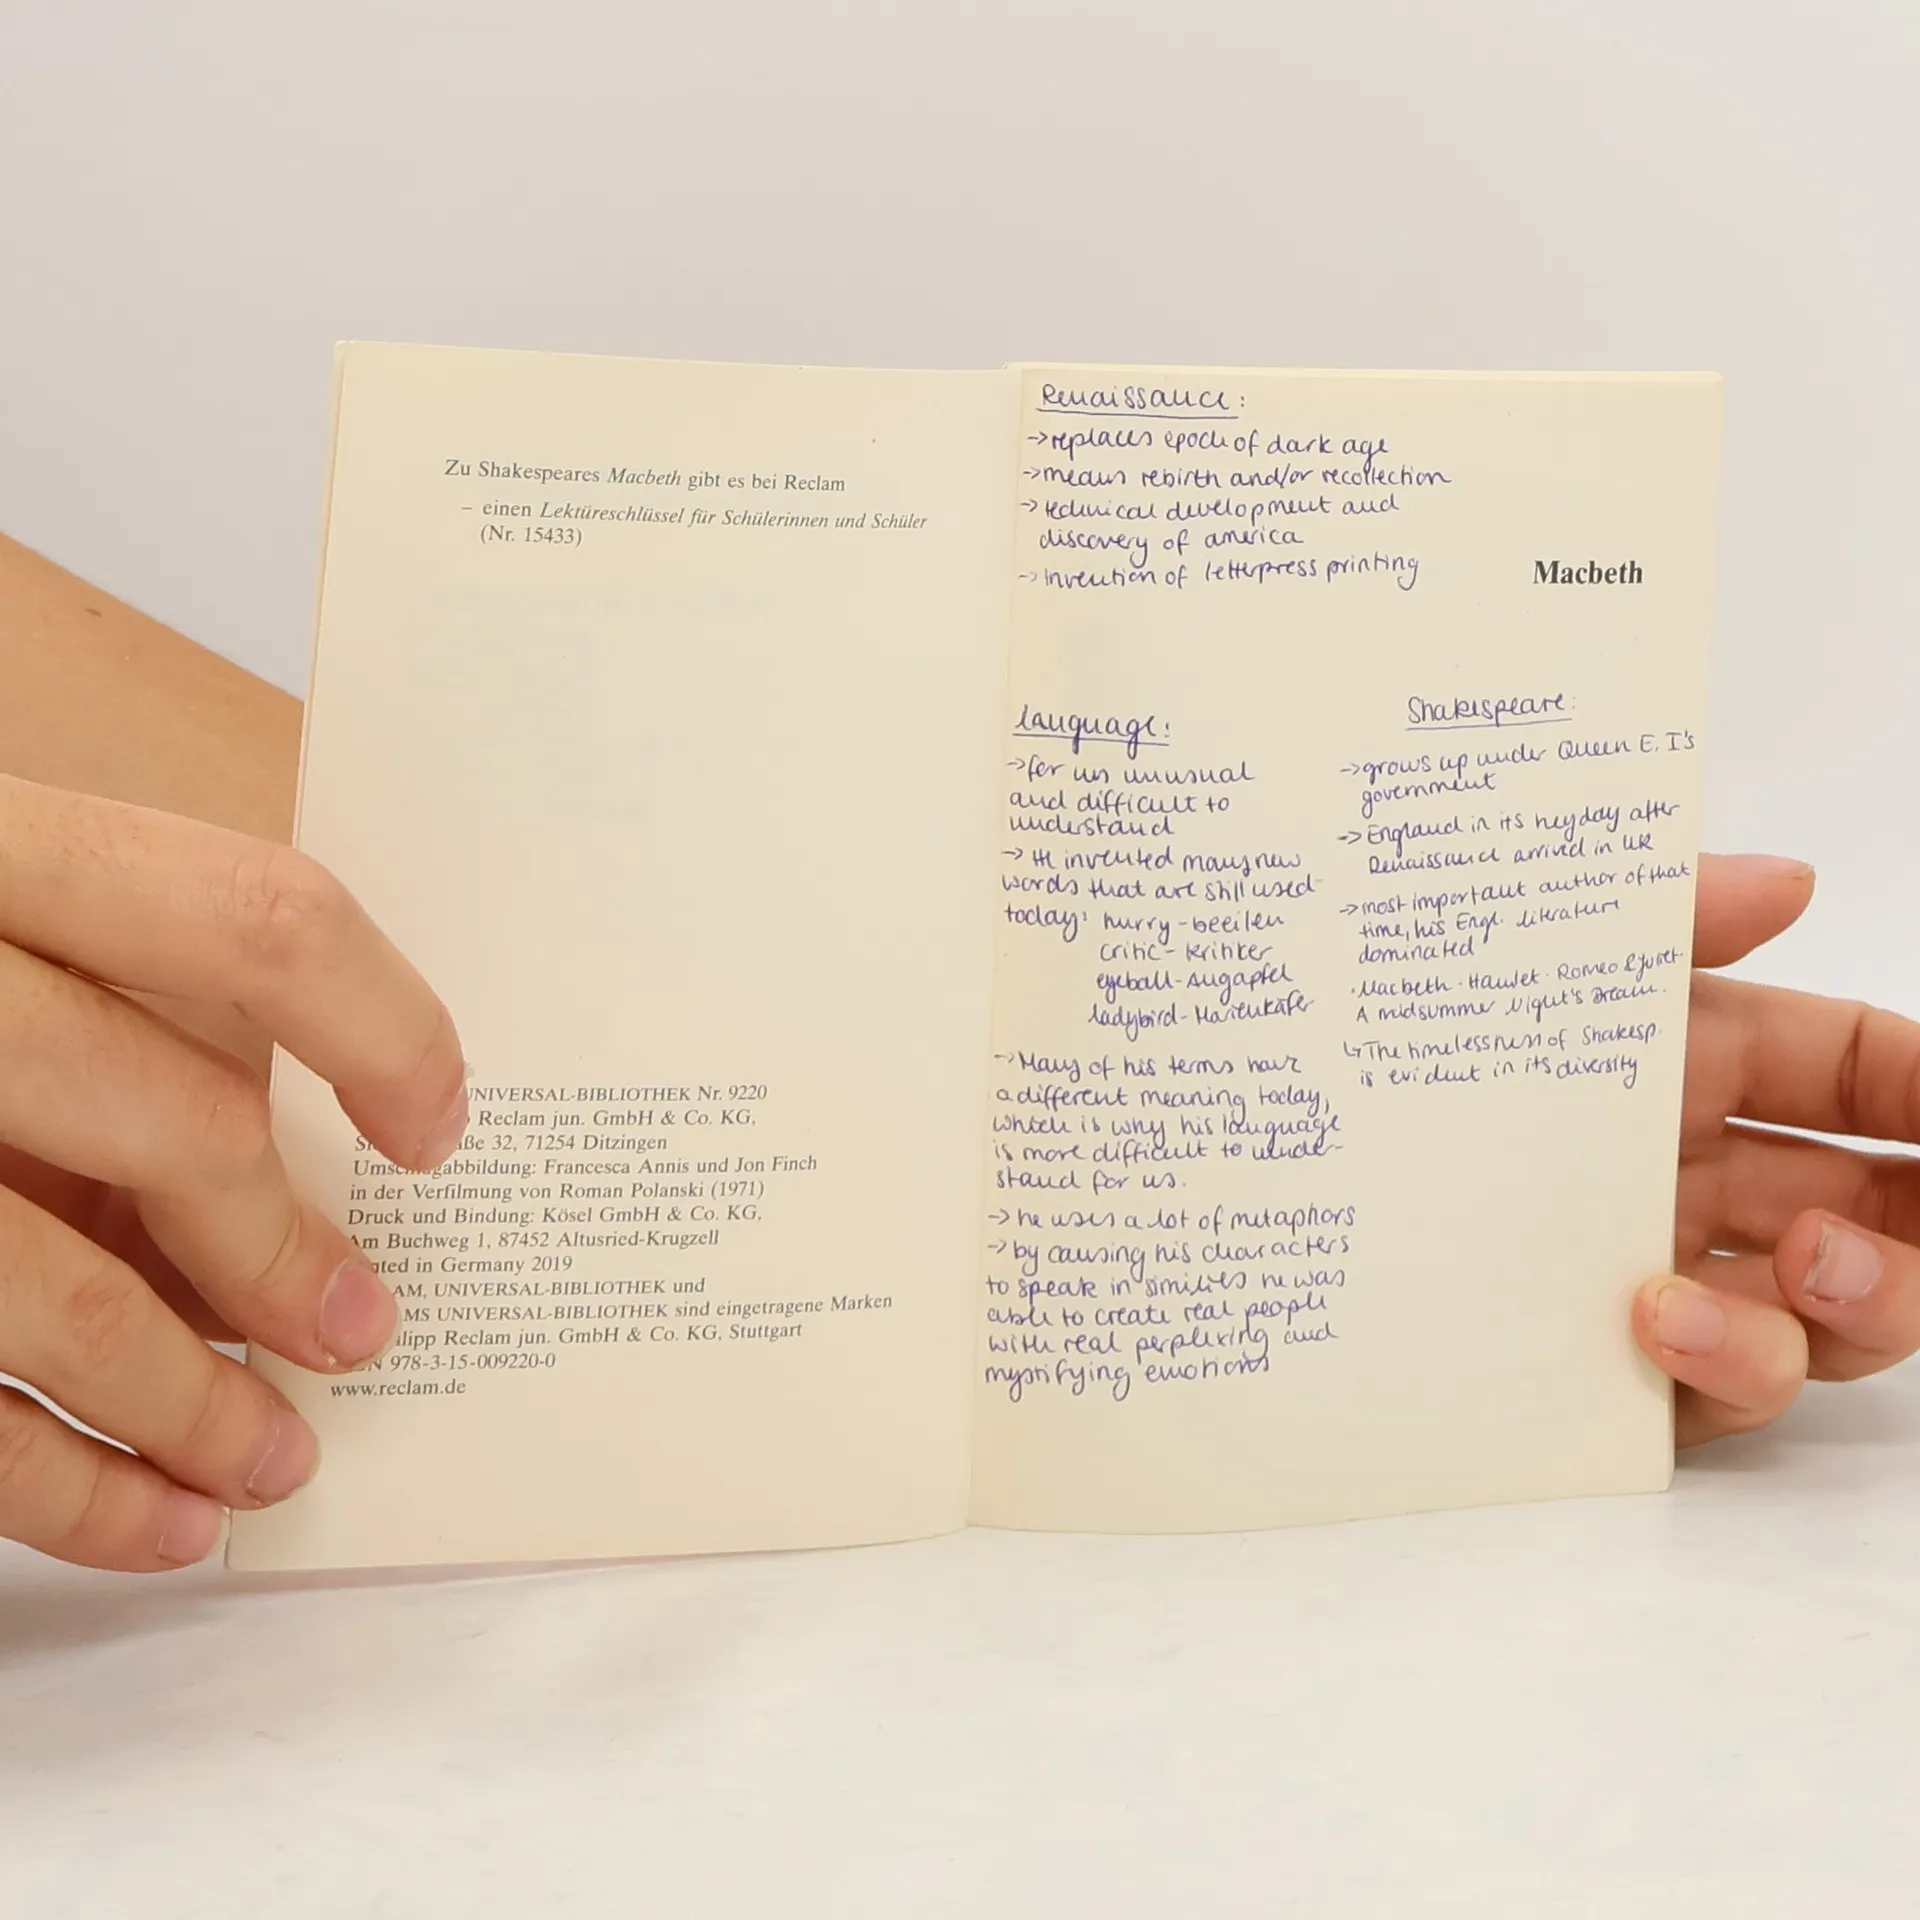 Zu Shakespeares Macbeth gibt es bei Reclam
– einen Lektüreschlüssel für Schülerinnen und Schüler
(Nr. 15433)
UNIVERSAL-BIBLIOTHEK Nr. 9220
Reclam jun. GmbH & Co. KG,
32, 71254 Ditzingen
Umschlagabbildung: Francesca Annis und Jon Finch
in der Verfilmung von Roman Polanski (1971)
Druck und Bindung: Kösel GmbH & Co. KG,
Am Buchweg 1, 87452 Altusried-Krugzell
in Germany 2019
UNIVERSAL-BIBLIOTHEK und
UNIVERSAL-BIBLIOTHEK sind eingetragene Marken
Reclam jun. GmbH & Co. KG, Stuttgart
978-3-15-009220-0
www.reclam.de
Renaissance:
-> replaces epoch of dark age
-> means rebirth and/or recollection
-> technical development and
discovery of america
-> Invention of letterpress printing
Macbeth
language:
-> for us unusual
and difficult to
understand
-> He invented many new
words that are still used
today: hurry - beeilen
critic - kritiker
eyeball - Augapfel
ladybird - Marienkäfer
-> Many of his terms have
a different meaning today,
which is why his language
is more difficult to under-
stand for us.
-> he uses a lot of metaphors
-> by causing his characters
to speak in similies he was
able to create real people
with real perplexing and
mystifying emotions
Shakespeare:
-> grows up under Queen E. I's
government
-> England in its heyday after
Renaissance arrived in UK
-> most important author of that
time, his Engl. literature
dominated
· Macbeth · Hamlet · Romeo & Juliet ·
A midsummer Night's Dream.
↳ The timelessness of Shakesp.
is evident in its diversity